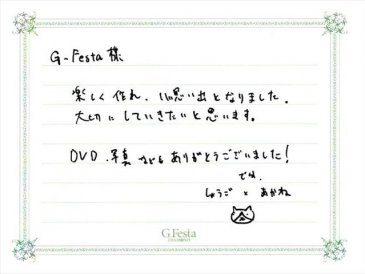 G-Festa 様
楽しく作れ、いい思い出となりました。
大切にしていきたいと思います。
DVD、写真などもありがとうございました!
しょうご × あかね
G.Festa
DIAMOND